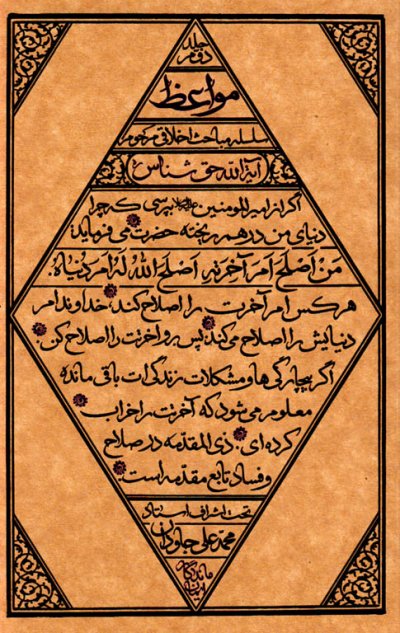 جلد
دفتر
مواعظ
سلسله مباحث اخلاقی مرحوم
آیة الله حق شناس
اگر از امیرالمومنین علیه‌السلام بپرسی که چرا
دنیای من در هم ریخته حضرت می فرماید:
مَن اَصلَحَ اَمرَ آخِرَتِهِ اَصلَحَ اللهُ لَهُ اَمرَ دُنیاهُ.
هر کس امر آخرت را اصلاح کند، خداوند امر
دنیایش را اصلاح می کند؛ پس برو آخرتت را اصلاح کن.
اگر بیچارگی ها و مشکلات زندگی ات باقی مانده
معلوم می شود که آخرتت را خراب
کرده ای. ذی المقدمه در صلاح
و فساد تابع مقدمه است.
تحت اشراف استاد
محمد علی جاودان
ماندگار